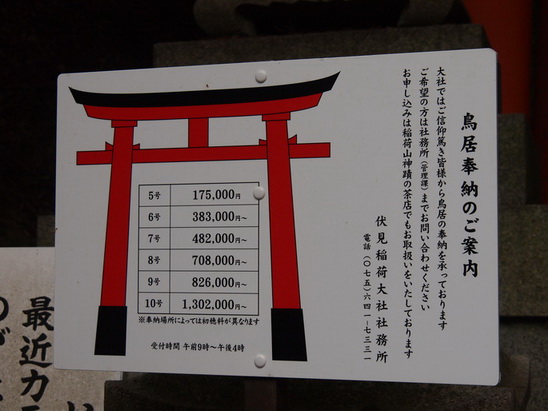 鳥居奉納のご案内
大社ではご信仰篤き皆様から鳥居の奉納を承っております
ご希望の方は社務所(管理課)までお問い合わせください
お申し込みは稲荷山神蹟の茶店でもお取扱いをいたしております
伏見稲荷大社社務所
電話(〇七五)六四一-七三三一
5号 175,000円~
6号 383,000円~
7号 482,000円~
8号 708,000円~
9号 826,000円~
10号 1,302,000円~
※奉納場所によっては初穂料が異なります
受付時間 午前9時~午後4時
最近カラ
のが